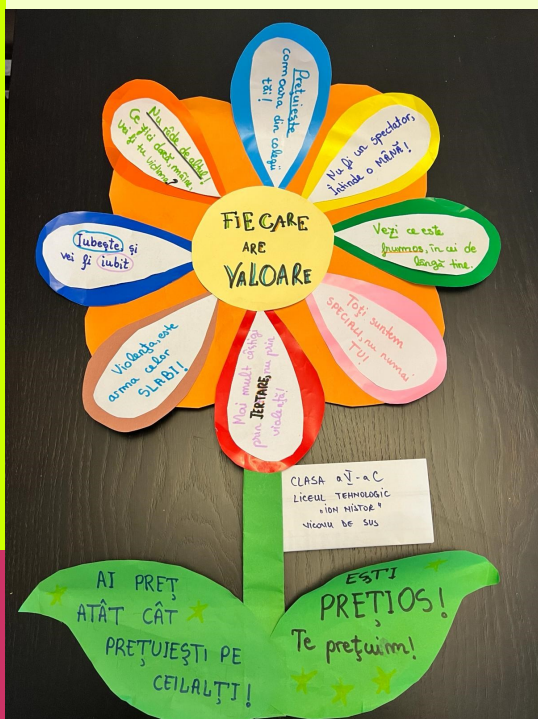 FIECARE
ARE
VALOARE
Prețuiește
comoara din colegii
tăi!
Nu fi un spectator,
Întinde o MÂNĂ!
Vezi ce este
frumos, în cei de
lângă tine.
Toți suntem
SPECIALI, nu numai
TU!
Mai mult câștigi
prin IERTARE, nu prin
violență!
Violența, este
arma celor
SLABI!
Iubește și
vei fi iubit
Nu râde de altul!
Ce zici dacă, mâine,
vei fi tu victima?
CLASA a V-a C
LICEUL TEHNOLOGIC
"ION NISTOR"
VICOVU DE SUS
AI PREȚ
ATÂT CÂT
PREȚUIEȘTI PE
CEILALȚI!
EȘTI
PREȚIOS!
Te prețuim!